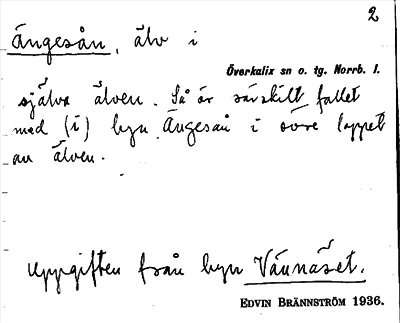 2
Ängesån, älv i
Överkalix sn o. tg. Norrb. l.
själva älven. Så är särskilt fallet
med (i) byn Ängesån i övre loppet
av älven.
Uppgiften från byn Vännäset.
EDVIN BRÄNNSTRÖM 1936.